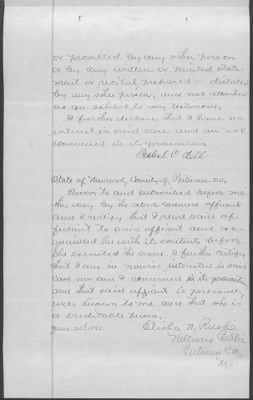 or prompted by any other person
or by any written or printed state-
ment or recital prepared or dictated
by any other person, and not attached
as an exhibit to my testimony.
I further declare that I have no
interest in said case and am not
concerned in its prosecution
Odell
State of New York, County of Putnam ss.
Sworn to and subscribed before me
this day by the above named affiant
and I certify that I read said af-
fidavit to said affiant and ac-
quainted her with its contents before
she executed the same. I further certify
that I am in nowise interested in said
case nor am I concerned in its prosecution
and that said affiant is personally
well known to me and that she is
a creditable person.
June
Elisha N. Rusk
Notary Public
Putnam Co
N.Y.